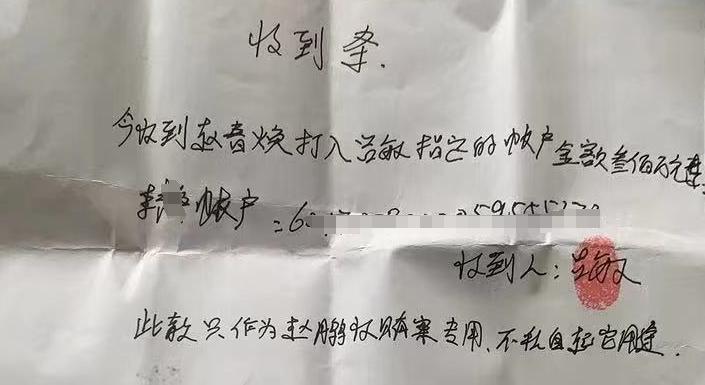 收到条
今收到赵春焕打入吕敏指定的帐户金额叁佰万元
帐户:6
收到人:吕敏
此款只作为赵鹏 案专用、不私自 它用途.